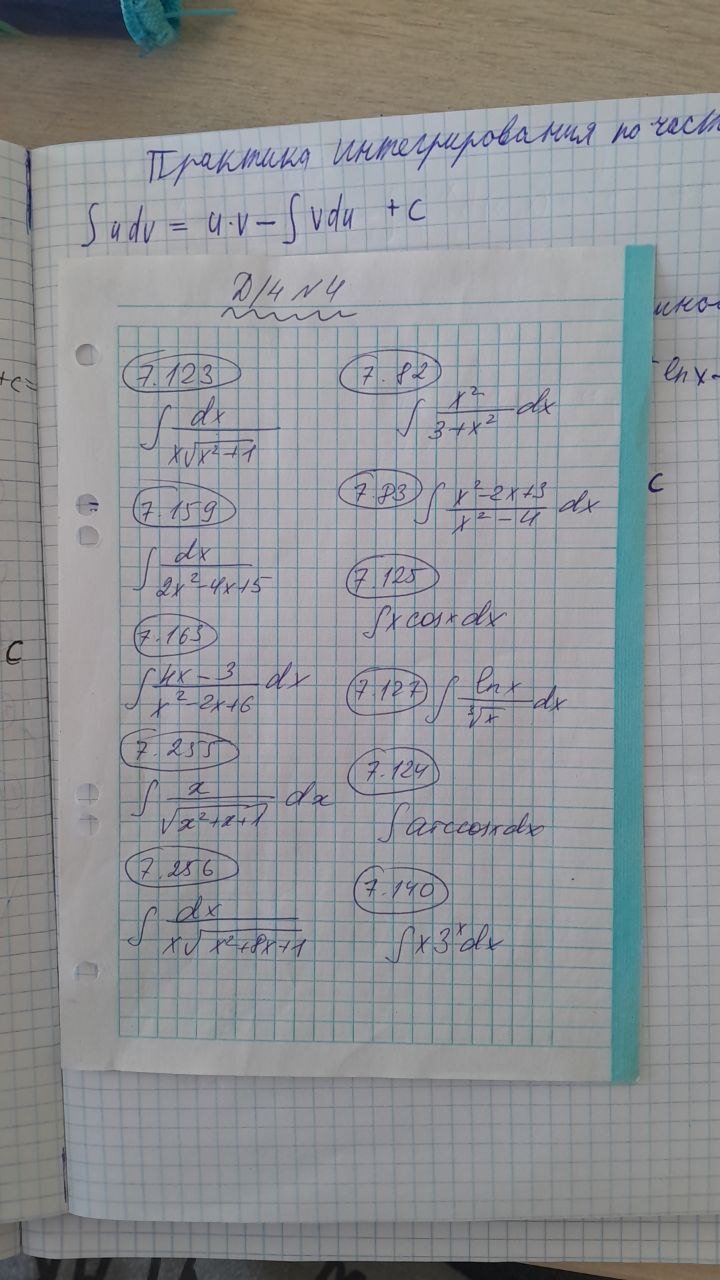 Практика интегрирования по част
∫ u dv = u·v − ∫ v du + c
Д/Ч №4
7.123
∫ dx / (x√(x²+1))
7.159
∫ dx / (2x²−4x+5)
7.163
∫ (4x−3) / (x²−2x+6) dx
7.255
∫ x / √(x²+x+1) dx
7.256
∫ dx / (x√(x²+8x+1))
7.82
∫ x² / (3+x²) dx
7.83 ∫ (x²−2x+3) / (x²−4) dx
7.125
∫ x cosx dx
7.127 ∫ lnx / ∛x dx
7.124
∫ arccosx dx
7.140
∫ x3ˣ dx
+c=
c
lnx−
c